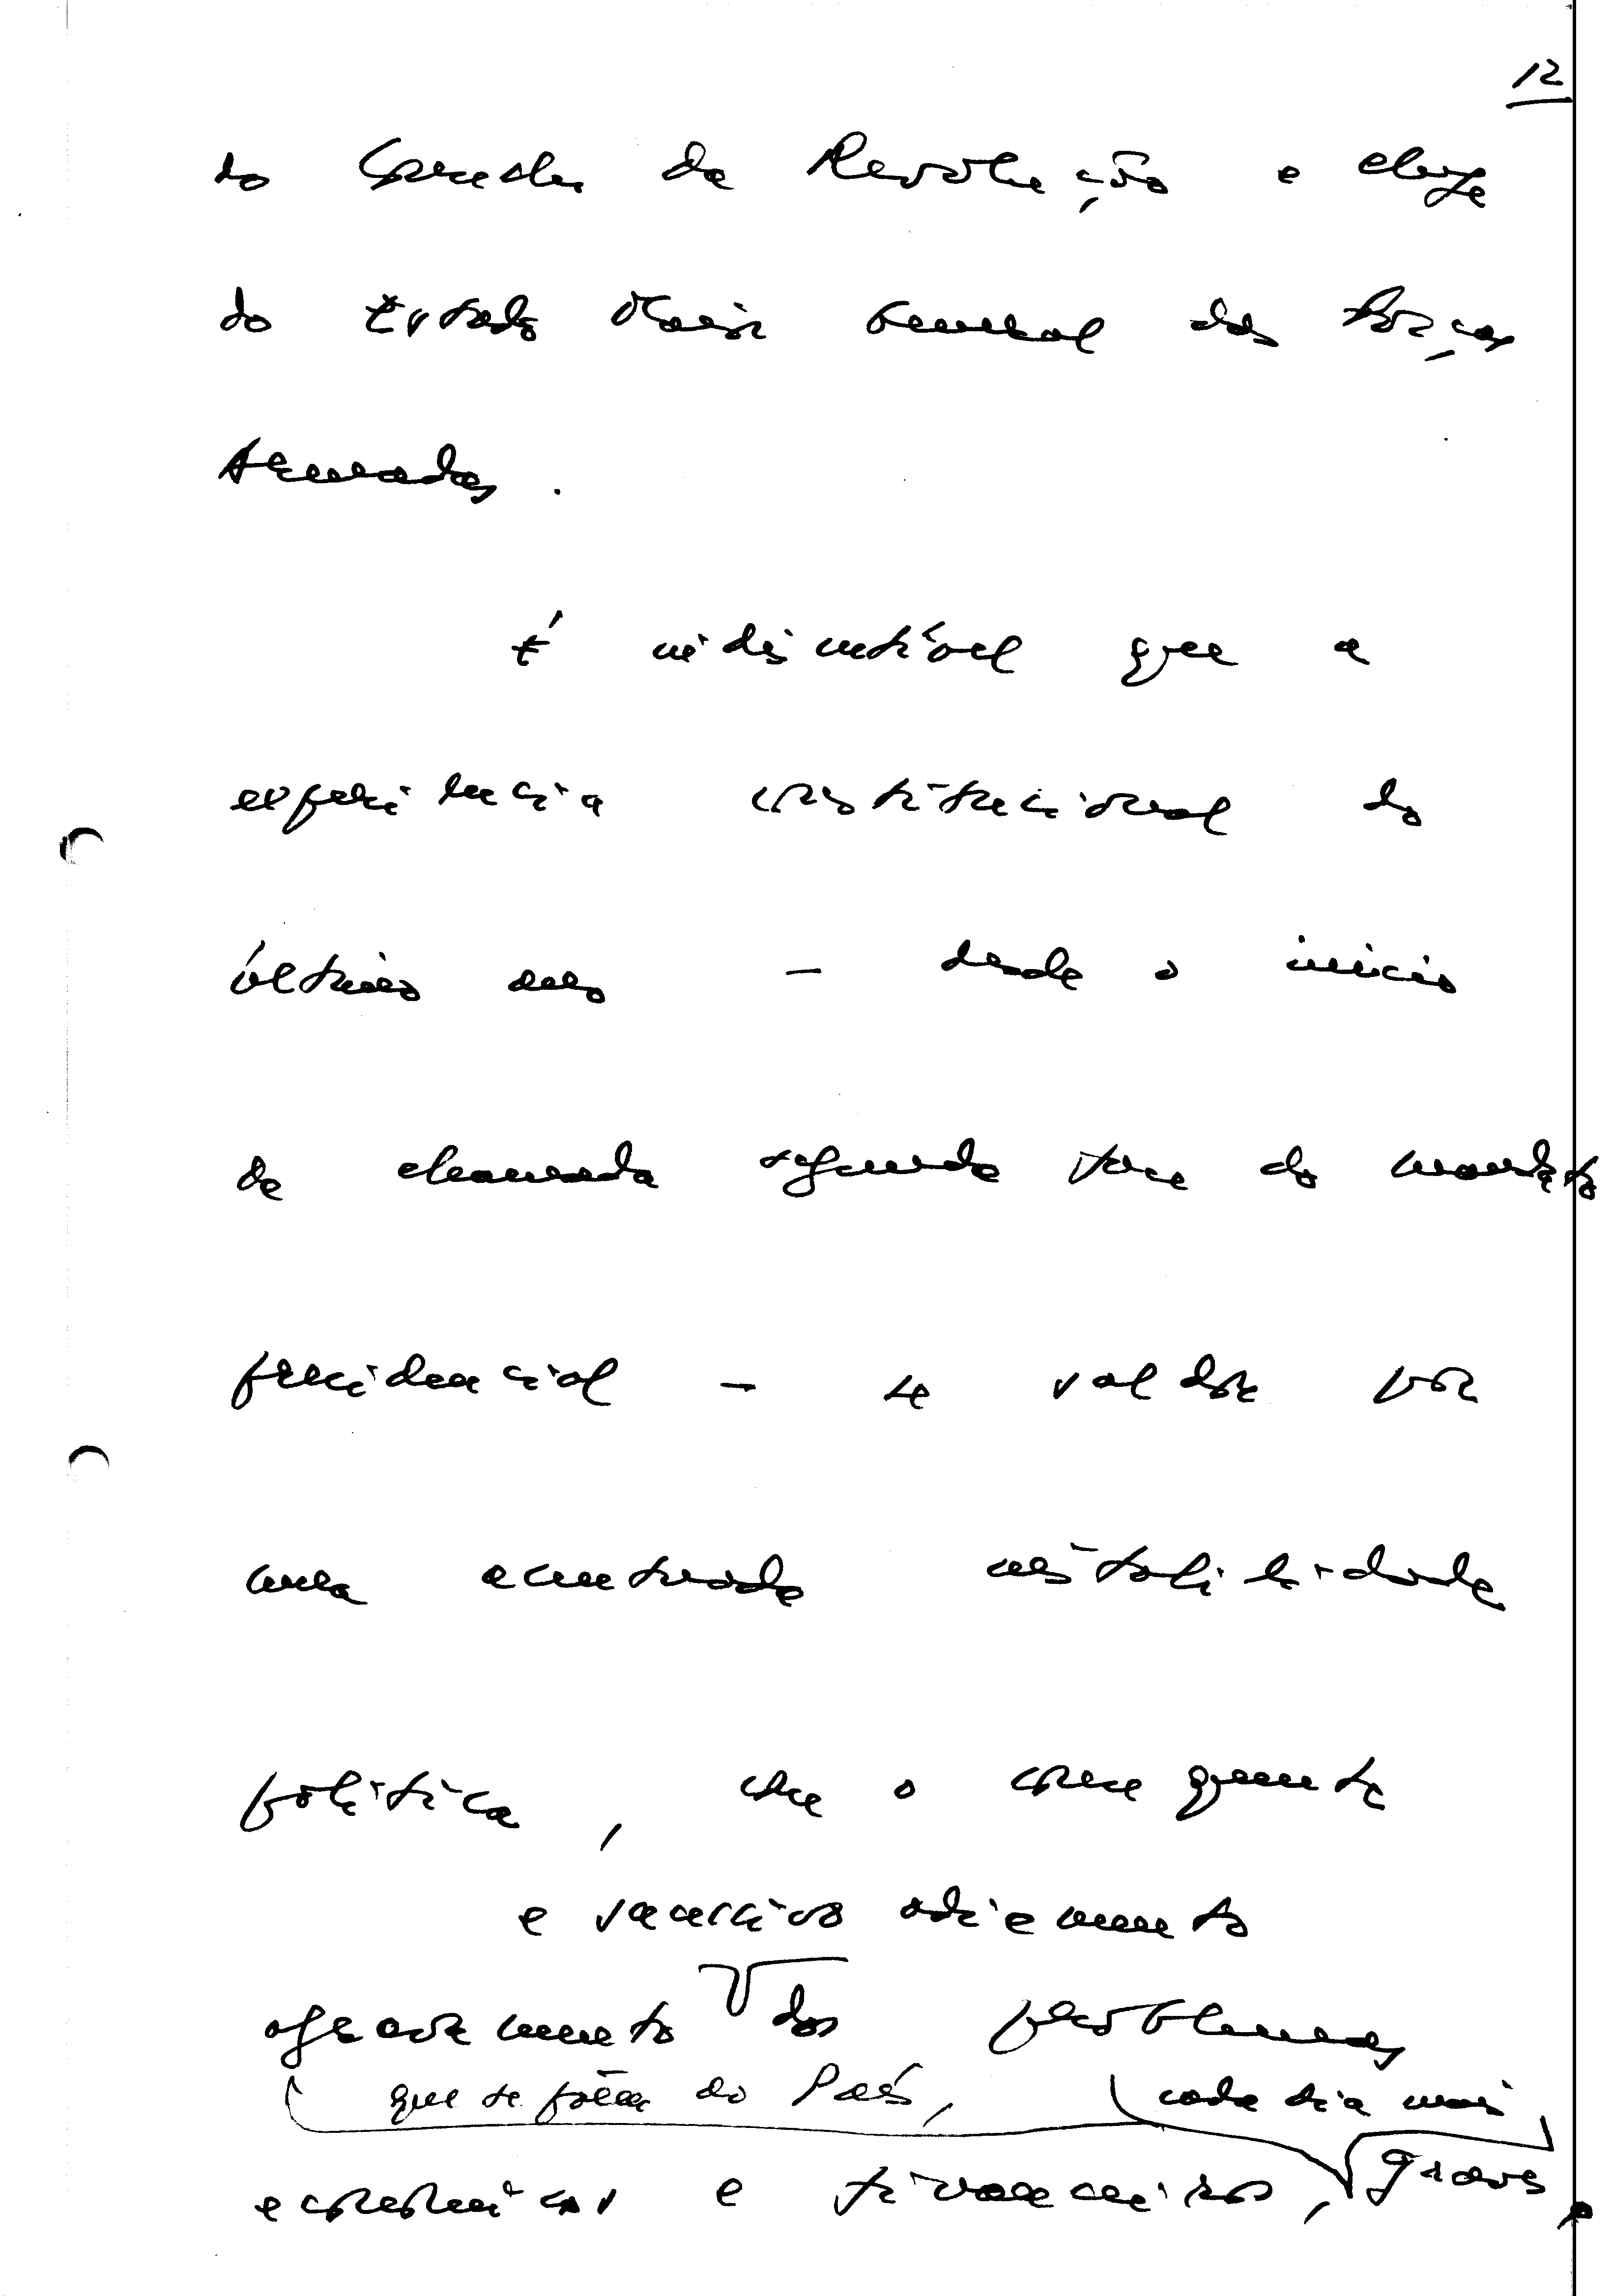 12
do Conselho da Revolução e chefe
do Estado Maior General das Forças
Armadas.
É indiscutível que a
experiência constitucional dos
últimos anos — desde o início
da chamada segunda fase do mandato
presidencial — se saldou por
uma acentuada instabilidade
política, com o consequente
e sucessivo adiamento
agravamento dos problemas
que se põem ao País, cada dia mais
económicos e financeiros, graves,